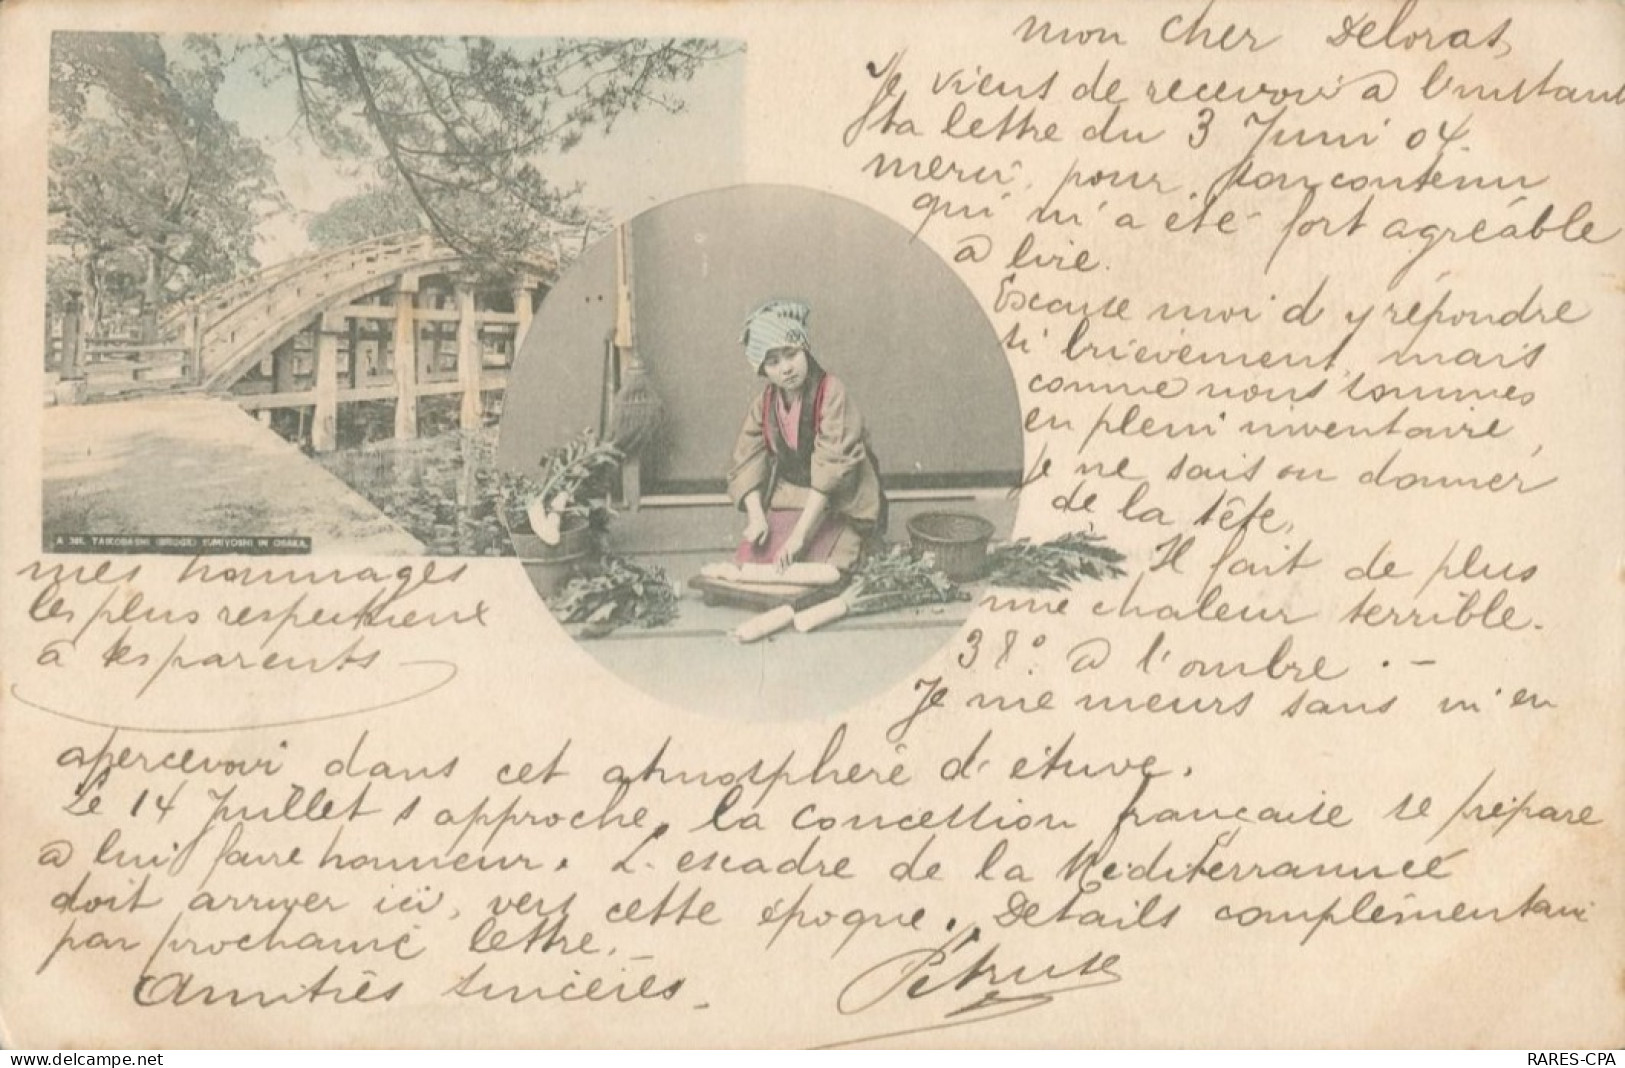 mon cher Delorat
Je viens de recevoir a l'instant
ta lettre du 3 Juni 04.
merci, pour, ton contenu
qui m'a été fort agréable
a lire.
Excuse moi d'y répondre
si brievement, mais
comme nous sommes
en plein inventaire,
je ne sais ou donner
de la tête,
Il fait de plus
une chaleur terrible.
38° a l'ombre . -
Je me meurs sans m'en
apercevoir dans cet atmosphère d'étuve.
Le 14 Juillet s'approche, la concession française se prépare
a lui faire honneur. L'escadre de la Mediterrannée
doit arriver ici, vers cette époque. Details complémentair
par prochaine lettre.
Amitiés sincères.
mes hommages
les plus respectueux
a tes parents
A 381. TAIKOBASHI (BRIDGE) SUMIYOSHI IN OSAKA.
delcampe.net
RARES-CPA